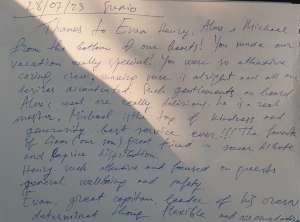 28/07/23
Thanks to Evan Henry, Alex & Michael
from the bottom of our hearts! You made our
vacation really special. You were so attentive
caring, crew service was a delight and all my
desires accounted. Such gentlemen on board
Alex's meals are really delicious, he is a real
master, Michael is the top of kindness and
generosity best service ever!!! The favorite
of Liam (our son) great fried in social
and
Henry such attentive and focused on guests
general wellbeing and safety
Evan, great captain, leader of his crew
determinant though flexible and